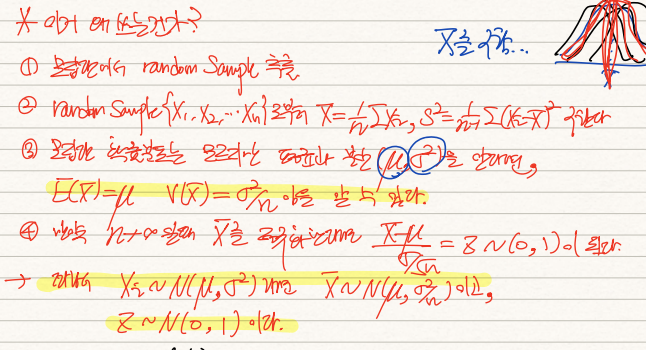 * 이거 왜 쓰는건가?
X̄를 구함...
① 모집단에서 random Sample 추출
② random Sample {X₁, X₂, ... Xn}로부터 X̄ = 1/n ΣXi, S² = 1/(n-1) Σ(Xi-X̄)² 구한다
③ 모집단 확률분포는 모르지만 평균과 분산 (μ, σ²)을 안다면,
E(X̄) = μ V(X̄) = σ²/n 임을 알 수 있다.
④ 만약 n→∞ 일때 X̄를 한다면 (X̄-μ)/(σ/√n) = Z ~ (0, 1)이 된다.
→ 따라서 Xi ~ N(μ, σ²)라면 X̄ ~ N(μ, σ²/n)이고,
Z ~ N(0, 1)이다.